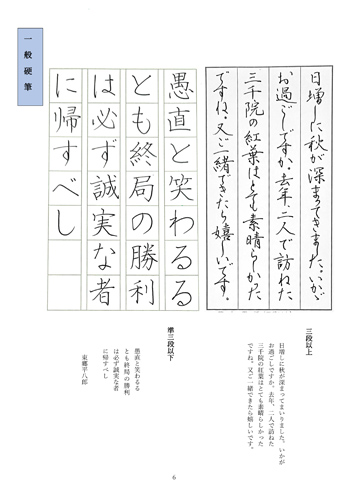 一般硬筆
日増しに秋が深まってきました。いかが
お過ごしですか。去年、二人で訪ねた
三千院の紅葉はとても素晴らしかった
ですね。又ご一緒できたら嬉しいです。
愚直と笑わるる
とも終局の勝利
は必ず誠実な者
に帰すべし
三段以上
日増しに秋が深まってまいりました。いかが
お過ごしですか。去年、二人で訪ねた
三千院の紅葉はとても素晴らしかった
ですね。又ご一緒できたら嬉しいです。
準三段以下
愚直と笑わるる
とも終局の勝利
は必ず誠実な者
に帰すべし
東郷平八郎
6